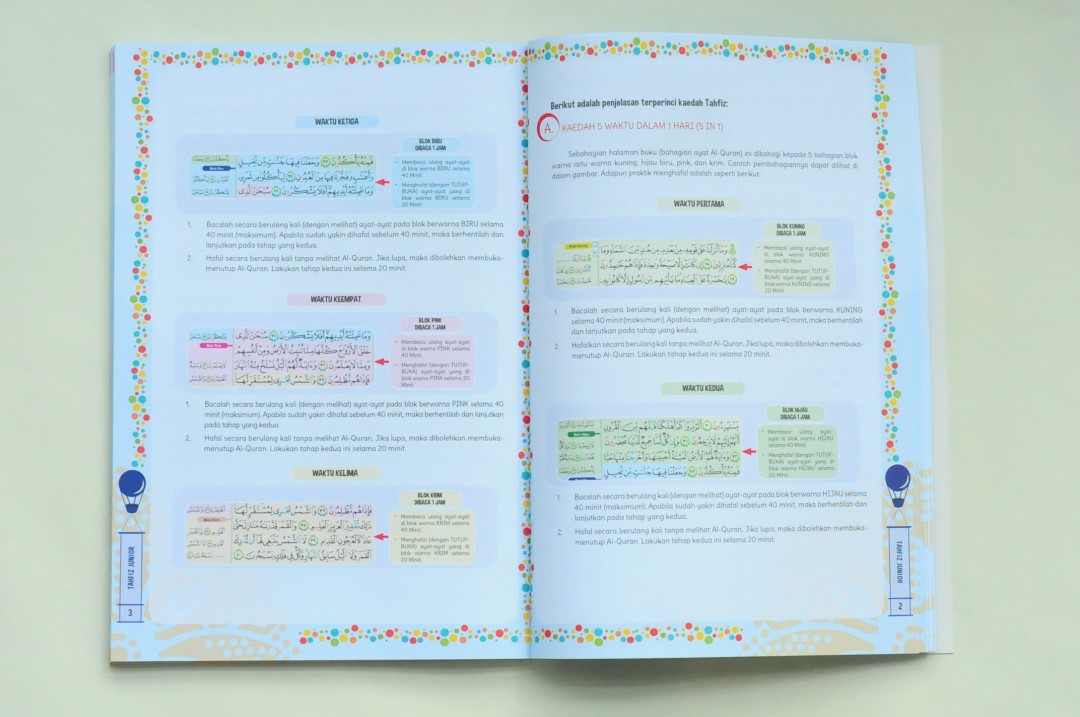 Berikut adalah penjelasan terperinci kaedah Tahfiz:
A. KAEDAH 5 WAKTU DALAM 1 HARI (5 IN 1)
Sebahagian halaman buku (bahagian ayat Al-Quran) ini dibahagi kepada 5 bahagian blok
warna iaitu warna kuning, hijau biru, pink, dan krim. Contoh pembahagiannya dapat dilihat di
dalam gambar. Adapun praktik menghafal adalah seperti berikut:
WAKTU PERTAMA
وَمَا أَنزَلْنَا عَلَىٰ قَوْمِهِ مِن بَعْدِهِ مِن جُندٍ مِّنَ السَّمَاءِ وَمَا
كُنَّا مُنزِلِينَ ٢٨ إِن كَانَتْ إِلَّا صَيْحَةً وَاحِدَةً فَإِذَا هُمْ خَامِدُونَ ٢٩
يَا حَسْرَةً عَلَى الْعِبَادِ مَا يَأْتِيهِم مِّن رَّسُولٍ إِلَّا كَانُوا بِهِ
Blok Kuning
BLOK KUNING
DIBACA 1 JAM
• Membaca ulang ayat-ayat
di blok warna KUNING
selama 40 Minit.
• Menghafal (dengan TUTUP-
BUKA) ayat-ayat yang di
blok warna KUNING selama
20 Minit.
1. Bacalah secara berulang kali (dengan melihat) ayat-ayat pada blok berwarna KUNING
selama 40 minit (maksimum). Apabila sudah yakin dihafal sebelum 40 minit, maka berhentilah
dan lanjutkan pada tahap yang kedua.
2. Hafalkan secara berulang kali tanpa melihat Al-Quran. Jika lupa, maka dibolehkan membuka-
menutup Al-Quran. Lakukan tahap kedua ini selama 20 minit.
WAKTU KEDUA
يَسْتَهْزِئُونَ ٣٠ أَلَمْ يَرَوْا كَمْ أَهْلَكْنَا قَبْلَهُم مِّنَ الْقُرُونِ
أَنَّهُمْ إِلَيْهِمْ لَا يَرْجِعُونَ ٣١ وَإِن كُلٌّ لَّمَّا جَمِيعٌ لَّدَيْنَا مُحْضَرُونَ
٣٢ وَآيَةٌ لَّهُمُ الْأَرْضُ الْمَيْتَةُ أَحْيَيْنَاهَا وَأَخْرَجْنَا مِنْهَا حَبًّا
فَمِنْهُ يَأْكُلُونَ ٣٣ وَجَعَلْنَا فِيهَا جَنَّاتٍ مِّن نَّخِيلٍ
Blok Hijau
BLOK HIJAU
DIBACA 1 JAM
• Membaca ulang ayat-
ayat di blok warna HIJAU
selama 40 Minit.
• Menghafal (dengan TUTUP-
BUKA) ayat-ayat yang di
blok warna HIJAU selama
20 Minit.
1. Bacalah secara berulang kali (dengan melihat) ayat-ayat pada blok berwarna HIJAU selama
40 minit (maksimum). Apabila sudah yakin dihafal sebelum 40 minit, maka berhentilah dan
lanjutkan pada tahap yang kedua.
2. Hafal secara berulang kali tanpa melihat Al-Quran. Jika lupa, maka dibolehkan membuka-
menutup Al-Quran. Lakukan tahap kedua ini selama 20 minit.
TAHFIZ JUNIOR
2
WAKTU KETIGA
فَمِنْهُ يَأْكُلُونَ ٣٣ وَجَعَلْنَا فِيهَا جَنَّاتٍ مِّن نَّخِيلٍ
وَأَعْنَابٍ وَفَجَّرْنَا فِيهَا مِنَ الْعُيُونِ ٣٤ لِيَأْكُلُوا مِن ثَمَرِهِ
وَمَا عَمِلَتْهُ أَيْدِيهِمْ أَفَلَا يَشْكُرُونَ ٣٥ سُبْحَانَ الَّذِي
Blok Biru
BLOK BIRU
DIBACA 1 JAM
• Membaca ulang ayat-ayat
di blok warna BIRU selama
40 Minit.
• Menghafal (dengan TUTUP-
BUKA) ayat-ayat yang di
blok warna BIRU selama
20 Minit.
1. Bacalah secara berulang kali (dengan melihat) ayat-ayat pada blok berwarna BIRU selama
40 minit (maksimum). Apabila sudah yakin dihafal sebelum 40 minit, maka berhentilah dan
lanjutkan pada tahap yang kedua.
2. Hafal secara berulang kali tanpa melihat Al-Quran. Jika lupa, maka dibolehkan membuka-
menutup Al-Quran. Lakukan tahap kedua ini selama 20 minit.
WAKTU KEEMPAT
وَمَا عَمِلَتْهُ أَيْدِيهِمْ أَفَلَا يَشْكُرُونَ ٣٥ سُبْحَانَ الَّذِي
خَلَقَ الْأَزْوَاجَ كُلَّهَا مِمَّا تُنبِتُ الْأَرْضُ وَمِنْ أَنفُسِهِمْ
وَمِمَّا لَا يَعْلَمُونَ ٣٦ وَآيَةٌ لَّهُمُ اللَّيْلُ نَسْلَخُ مِنْهُ النَّهَارَ
فَإِذَا هُم مُّظْلِمُونَ ٣٧ وَالشَّمْسُ تَجْرِي لِمُسْتَقَرٍّ لَّهَا
Blok Pink
BLOK PINK
DIBACA 1 JAM
• Membaca ulang ayat-ayat
di blok warna PINK selama
40 Minit.
• Menghafal (dengan TUTUP-
BUKA) ayat-ayat yang di
blok warna PINK selama 20
Minit.
1. Bacalah secara berulang kali (dengan melihat) ayat-ayat pada blok berwarna PINK selama 40
minit (maksimum). Apabila sudah yakin dihafal sebelum 40 minit, maka berhentilah dan lanjutkan
pada tahap yang kedua.
2. Hafal secara berulang kali tanpa melihat Al-Quran. Jika lupa, maka dibolehkan membuka-
menutup Al-Quran. Lakukan tahap kedua ini selama 20 minit.
WAKTU KELIMA
فَإِذَا هُم مُّظْلِمُونَ ٣٧ وَالشَّمْسُ تَجْرِي لِمُسْتَقَرٍّ لَّهَا
ذَٰلِكَ تَقْدِيرُ الْعَزِيزِ الْعَلِيمِ ٣٨ وَالْقَمَرَ قَدَّرْنَاهُ مَنَازِلَ حَتَّىٰ
عَادَ كَالْعُرْجُونِ الْقَدِيمِ ٣٩ لَا الشَّمْسُ يَنبَغِي لَهَا أَن تُدْرِكَ
الْقَمَرَ وَلَا اللَّيْلُ سَابِقُ النَّهَارِ وَكُلٌّ فِي فَلَكٍ يَسْبَحُونَ ٤٠
Blok Krim
BLOK KRIM
DIBACA 1 JAM
• Membaca ulang ayat-ayat
di blok warna KRIM selama
40 Minit.
• Menghafal (dengan TUTUP-
BUKA) ayat-ayat yang di
blok warna KRIM selama
20 Minit.
TAHFIZ JUNIOR
3